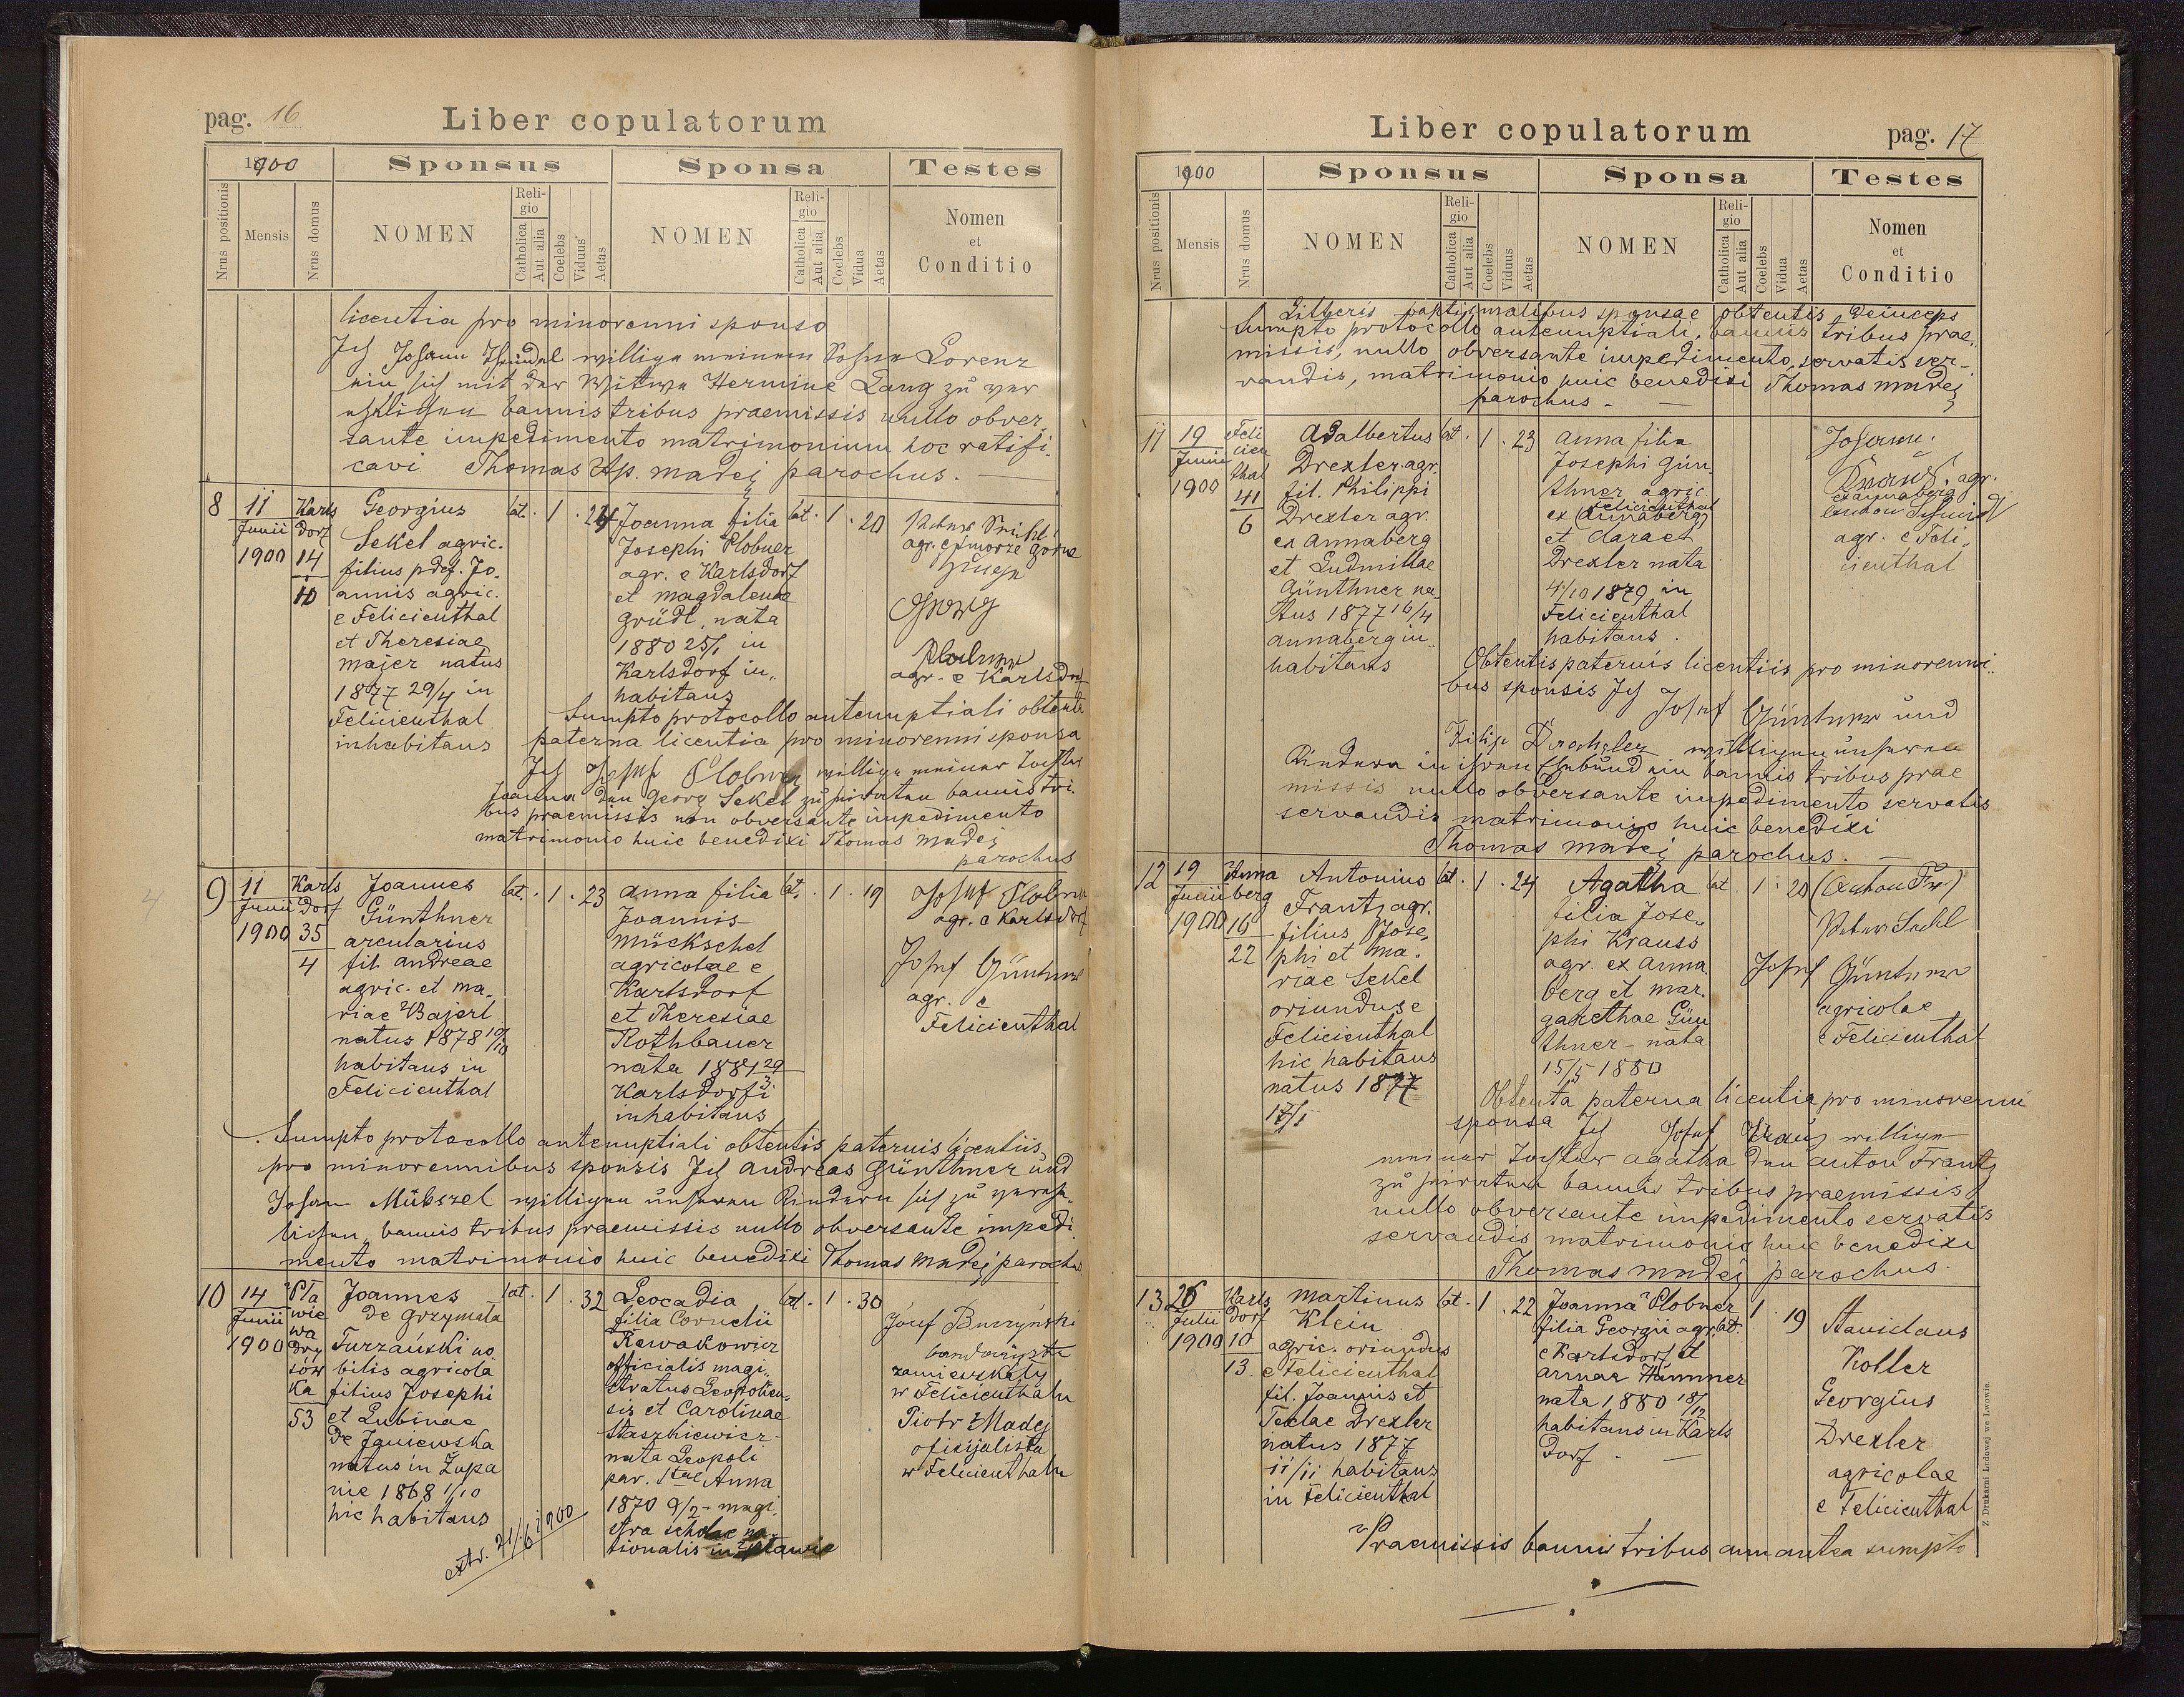 pag. 16
Liber copulatorum
1900
Sponsus
Sponsa
Testes
Nrus positionis
Mensis
Nrus domus
NOMEN
Religio
Catholica
Aut alia
Coelebs
Viduus
Aetas
NOMEN
Religio
Catholica
Aut alia
Coelebs
Vidua
Aetas
Nomen
et
Conditio
licentia pro minorenni sponso
Ich Johann willige meinem Sohne Lorenz
ein sich mit der Witwe Hermine Lang zu ver
ehelichen bannis tribus praemissis nullo obver.
sante impedimento matrimonium hoc ratifi.
cavi Thomas Ap. Madej parochus.
8
11
Junii
1900
Karls
dorf
14
10
Georgius
Sekel agric.
filius pdef. Jo.
annis agric.
e Felicienthal
et Theresiae
Majer natus
1877 29/4 in
Felicienthal
inhabitans
cat. 1. 24
Joanna filia
Josephi Plobner
agr. e Karlsdorf
et Magdalenae
Gründl, nata
1880 25/1 in
Karlsdorf in„
habitans
cat. 1. 20
Georg
agr. e Karlsdorf
Sumpto protocollo antenuptiali obtenta
paterna licentia pro minorenni sponsa
Ich Josef Plobner willige meiner Tochter
Joanna den Georg Sekel zu heiraten bannis tri.
bus praemissis non obversante impedimento
matrimonio huic benedixi Thomas Madej
parochus
9
11
Junii
1900
Karls
dorf
35
4
Joannes
Günthner
arcularius
fil. Andreae
agric. et Ma„
riae Bajerl
natus 1878 10/10
habitans in
Felicienthal
cat. 1. 23
Anna filia
Joannis
Möckschel
agricolae e
Karlsdorf
et Theresiae
Rothbauer
nata 1881 29/3
Karlsdorf i
inhabitans
cat. 1. 19
Josef Plobner
agr. e Karlsdorf
Josef Günthner
agr. e
Felicienthal
Sumpto protocollo antenuptiali obtentis paternis licentiis
pro minorennibus sponsis Ich Andreas Günthner und
Johan Mükszel willigen unseren Kindern sich zu verehe„
lichen, bannis tribus praemissis nullo obversante impedi
mento matrimonio huic benedixi Thomas Madej parochus
10
14
Junii
1900
Pła
wie
wa
Dry
sów
ka
53
Joannes
de Grzymała
Turzański no
bilis agricola
filius Josephi
et Lubinae
de Janiewska
natus in Żupa
nie 1868 1/10
hic habitans
cat. 1. 32
Leocadia
filia Cornelii
Rawakowicz
officialis magi„
stratus Leopolien„
sis et Carolinae
Staszkiewicz
nata Leopoli
par. Stae Anna
1870 9/2 - magi„
stra scholae na„
tionalis in Pławie
cat. 1. 30
Józef Burzyński
zamieszkały
w Felicienthalu
Piotr Madej
oficijalista
w Felicienthalu
extr. 21/6 1900
Liber copulatorum
pag. 17
1900
Sponsus
Sponsa
Testes
Nrus positionis
Mensis
Nrus domus
NOMEN
Religio
Catholica
Aut alia
Coelebs
Viduus
Aetas
NOMEN
Religio
Catholica
Aut alia
Coelebs
Vidua
Aetas
Nomen
et
Conditio
Litteris baptismalibus sponsae obtentis deinceps
sumpto protocollo antenuptiali, bannis tribus prae„
missis, nullo obversante impedimento, servatis ser-
vandis, matrimonio huic benedixi Thomas Madej
parochus -
11
19
Junii
1900
Feli
cien
thal
41
6
Adalbertus
Drexler agr.
fil. Philippi
Drexler agr.
ex Annaberg
et Ludmillae
Günthner na„
tus 1877 16/4
Annaberg in„
habitans
cat. 1. 23
Anna filia
Josephi Gün
thner agric.
Felicienthal
ex (Annaberg)
et Clarae
Drexler nata
4/10 1879 in
Felicienthal
habitans.
Johann
agr.
ex Annaberg
Anton Schmidt
agr. e Feli„
cienthal
Obtentis paternis licentiis pro minorenni„
bus sponsis Ich Josef Günthner und
Filip Drechsler willigen unseren
Kindern in ihren Ehebund ein bannis tribus prae
missis nullo obversante impedimento servatis
servandis matrimonio huic benedixi
Thomas Madej parochus.
12
19
Junii
1900
Anna
berg
16
22
Antonius
Frantz agr.
filius Jose„
phi et Ma.
riae Sekel
oriundus e
Felicienthal
hic habitans
natus 1877
17/1
cat. 1. 24
Agatha
filia Jose„
phi Krauss
agr. ex Anna„
berg et Mar.
garethae Gün
thner - nata
15/5 1880
cat. 1. 20
Josef Günthner
agricolae
e Felicienthal
Obtenta paterna licentia pro minorenni
sponsa Ich Josef Kraus willige
meiner Tochter Agatha den Anton Frantz
zu heiraten bannis tribus praemissis
nullo obversante impedimento servatis
servandis matrimonio huic benedixi
Thomas Madej parochus.
13
26
Julii
1900
Karls
dorf
10
13.
Martinus
Klein
agric. oriundus
e Felicienthal
fil. Joannis et
Teclae Drexler
natus 1877
11/11 habitans
in Felicienthal
cat. 1. 22
Joanna Plobner
filia Georgii agr.
e Karlsdorf et
Annae Hümmer
nata 1880 18/12
habitans in Karls
dorf. -
cat. 1. 19
Stanislaus
Koller
Georgius
Drexler
agricolae
e Felicienthal
Praemissis bannis tribus cum antea sumpto
Z Drukarni Ludowej we Lwowie.